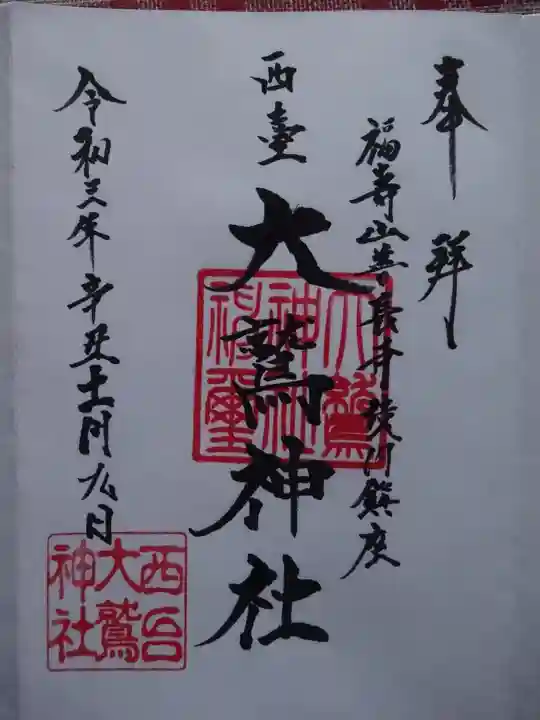 奉拝
福壽山善長寺後門鎮座
西臺
大鷲神社
令和三年辛丑十一月九日
大鷲
神社
神璽
西台
大鷲
神社